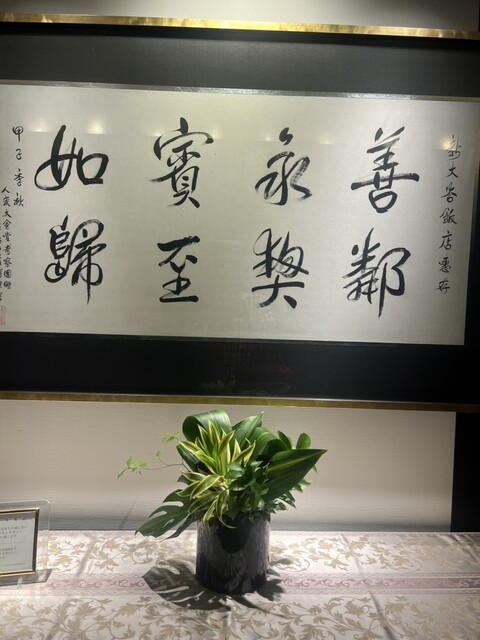 新大谷飯店惠存
善鄰
永
賓至
如歸
甲子季秋
人民大會堂考察團贈